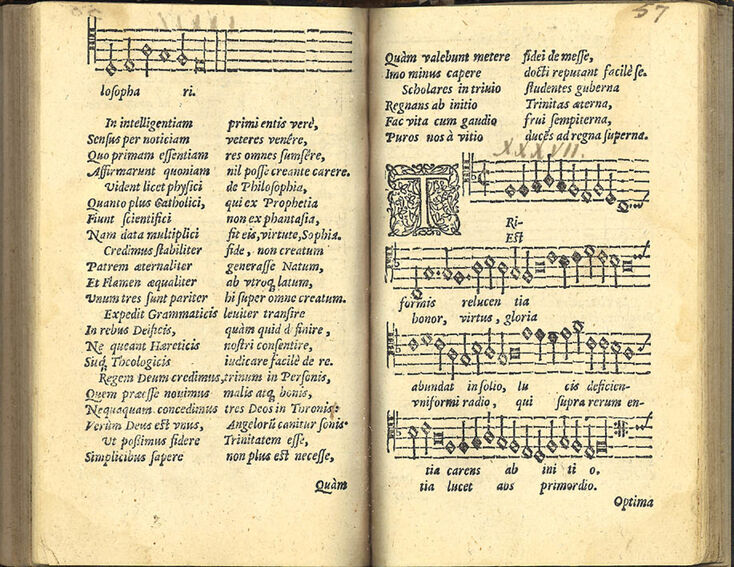 losopha ri.
In intelligentiam primi entis verè,
Sensus per noticiam veteres venêre,
Quo primam essentiam res omnes sumsêre,
Affirmarunt quoniam nil posse creante carere.
Vident licet physici de Philosophia,
Quanto plus Catholici, qui ex Prophetia
Fiunt scientifici non ex phantasia,
Nam data multiplici sit eis, virtute, Sophia.
Credimus stabiliter fide, non creatum
Patrem æternaliter generasse Natum,
Et Flamen æqualiter ab vtroq; latum,
Vnum tres sunt pariter hi super omne creatum.
Expedit Grammaticis leuiter transire
In rebus Deificis, quàm quid d finire,
Ne queant Hæreticis nostri consentire,
Suq; Theologicis iudicare facilè de re.
Regem Deum credimus, trinum in Personis,
Quem præesse nouimus malis atq; bonis,
Nequaquam concedimus tres Deos in Thronis:
Verùm Deus est vnus, Angelorũ canitur sonis.
Vt possimus fidere Trinitatem esse,
Simplicibus sapere non plus est necesse,
Quàm
57
Quàm valebunt metere fidei de messe,
Imo minus capere docti reputant facilè se.
Scholares in triuio studentes guberna
Regnans ab initio Trinitas æterna,
Fac vita cum gaudio frui sempiterna,
Puros nos à vitio ducẽs ad regna superna.
XXXVII
TRI-
Est
formis relucen tia
honor, virtus, gloria
abundat in solio, lu cis deficien-
vniformi radio, qui supra rerum en-
tia carens ab ini ti o.
tia lucet abs primordio.
Optima